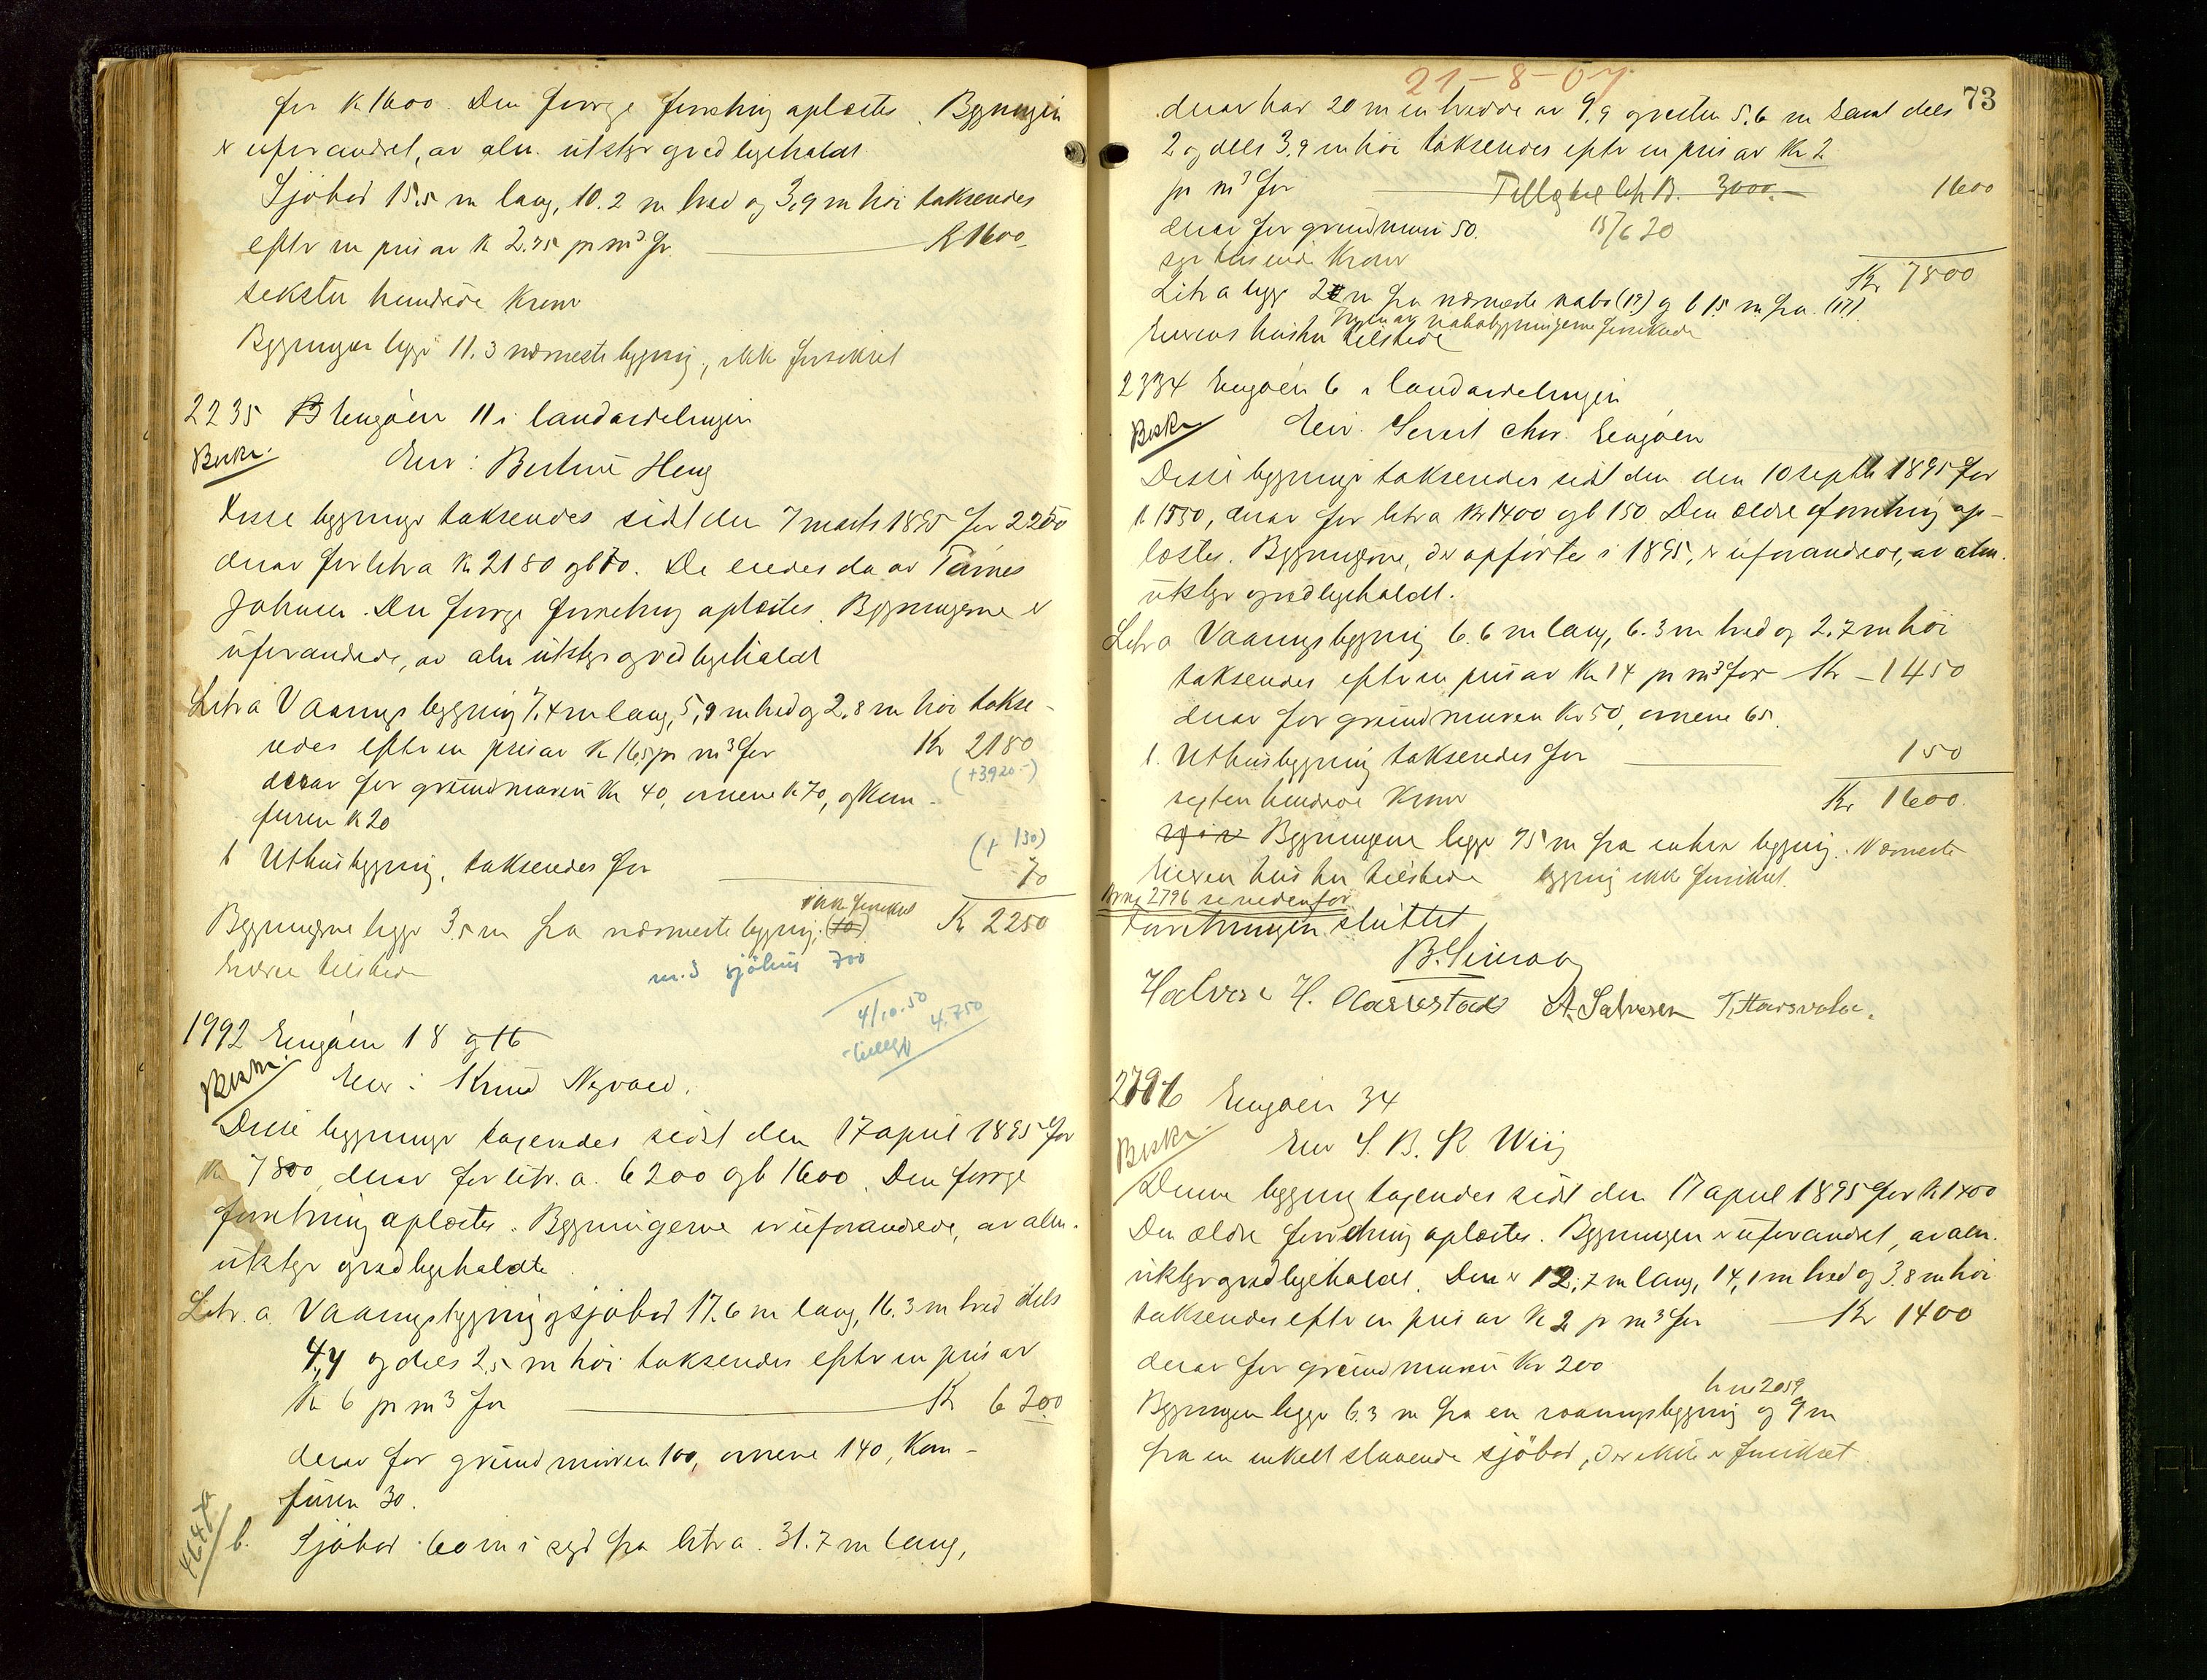 for K 1600. Den forrige forretning oplæstes. Bygningen
er uforandret, av alm. utstyr og vedlikeholdt
Sjøbod 15,5 m lang, 10.2 m bred og 3,9 m høi taksendes
efter en pris av K 2.75 pr m³ for K 1600
seksten hundrede kroner
Bygningen ligger 11.3 nærmeste bygning, ikke forsikret
2235 Engøen 11 i landavdelingen
Beskr. Eier: Bertine Heng
Disse bygninger taksendes sidst den 7 marts 1895 for 2250
derav for litra K 2180 og b 70. De eiedes da av
Johnsen. Den forrige forretning oplæstes. Bygningerne er
uforandrede, av alm utstyr og vedligeholdt
Litr a Vaaningsbygning 7,4 m lang, 5,9 m bred og 2.8 m høi takse-
redes efter en pris av K 16,5 pr m³ for Kr 2180
derav for grundmuren Kr 40, ovnene K 70, og Kom- (+3920-)
furen K 20
b Uthusbygning, taksendes for (+ 130)
70
Bygningerne ligger 3,5 m fra nærmeste bygning; (10) ikke forsikret K 2250
Eieren tilstede
nr. 3 sjøhus 700
4/10.50 4.750
tillegg
1992 Engøen 18 gtb
Beskr. Eier: Knud Nyvold.
Disse bygninger taxendes sidst den 17 april 1895 for
K 7800, derav for litr. a. 6200 og b 1600. Den forrige
forretning oplæstes. Bygningerne er uforandrede, av alm.
utstyr og vedligeholdte
Litr. a. Vaaningsbygning og sjøbod 17.6 m lang, 16.3 m bred dels
4,4 og dels 2,5 m høi taksendes efter en pris av
K 6 pr m³ for K 6200
derav for grundmuren 100, ovnene 140, Kom-
furen 30.
b. Sjøbod 60 m i syd fra litr a. 31.7 m lang,
21-8-07
73
derav har 20 m en bredde av 9,9 og resten 5.6 m samt dels
2 og dels 3,9 m høi taksendes efter en pris av Kr 2
pr m³ for Tillæg 3000.- 1600
derav for grundmuren 50. 15/6 20
syv tusinde kroner Kr 7800
Litr a ligger 2 m fra nærmeste nabo (19) og b 15 m fra (17)
Ingen av nabobygningerne forsikrede
Eierens hustru tilstede
2334 Engøen 6 i landavdelingen
Beskr. Eier: Chr. Engøen
Disse bygninger taksendes sidst den den 10 septbr 1895 for
K 1550, derav for litr a Kr 1400 og b 150 Den ældre forretning op-
læstes. Bygningerne, der opførtes i 1895, er uforandrede, av alm.
utstyr og vedligeholdt.
Litr a Vaaningsbygning 6.6 m lang, 6.3 m bred og 2.7 m høi
taksendes efter en pris av Kr 14 pr m³ for Kr 1450
derav for grundmuren Kr 50, ovnene 65.
b. Uthusbygning taksendes for 150
seksten hundrede kroner Kr 1600
Bygningerne ligger 75 m fra anden bygning. Nærmeste
bygning ikke forsikret.
Eieren hustru tilstede
Br nr 2796 se nedenfor
Forretningen sluttet
Halvor H. A. Salvesen
2796 Engøen 34
Beskr. Eier S. B. K. Wiig
Denne bygning taxendes sidst den 17 april 1895 for K 1400
Den ældre forretning oplæstes. Bygningen er uforandret, av alm.
utstyr og vedligeholdt. Den er 12,7 m lang, 14,1 m bred og 3.8 m høi
taksendes efter en pris av K 2 pr m³ for Kr 1400
derav for grundmuren Kr 200
br nr 2059
Bygningen ligger 6.3 m fra en vaaningsbygning og 9 m
fra en enkelt staaende sjøbod, der ikke er forsikret